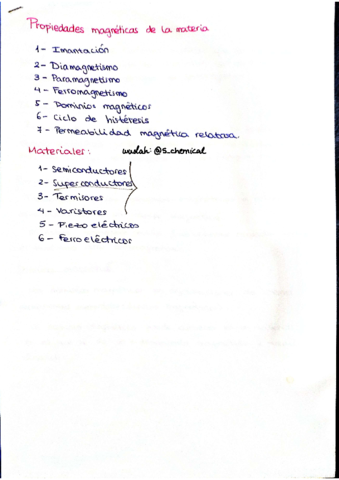 Propiedades magnéticas de la materia
1- Imantación
2- Diamagnetismo
3- Paramagnetismo
4- Ferromagnetismo
5- Dominios magnéticos
6- Ciclo de histéresis
7- Permeabilidad magnética relativa.
Materiales: wuolah: @S_chemical
1- Semiconductores
2- Superconductores
3- Termisores
4- Varistores
5- Piezoeléctricos
6- Ferroeléctricos